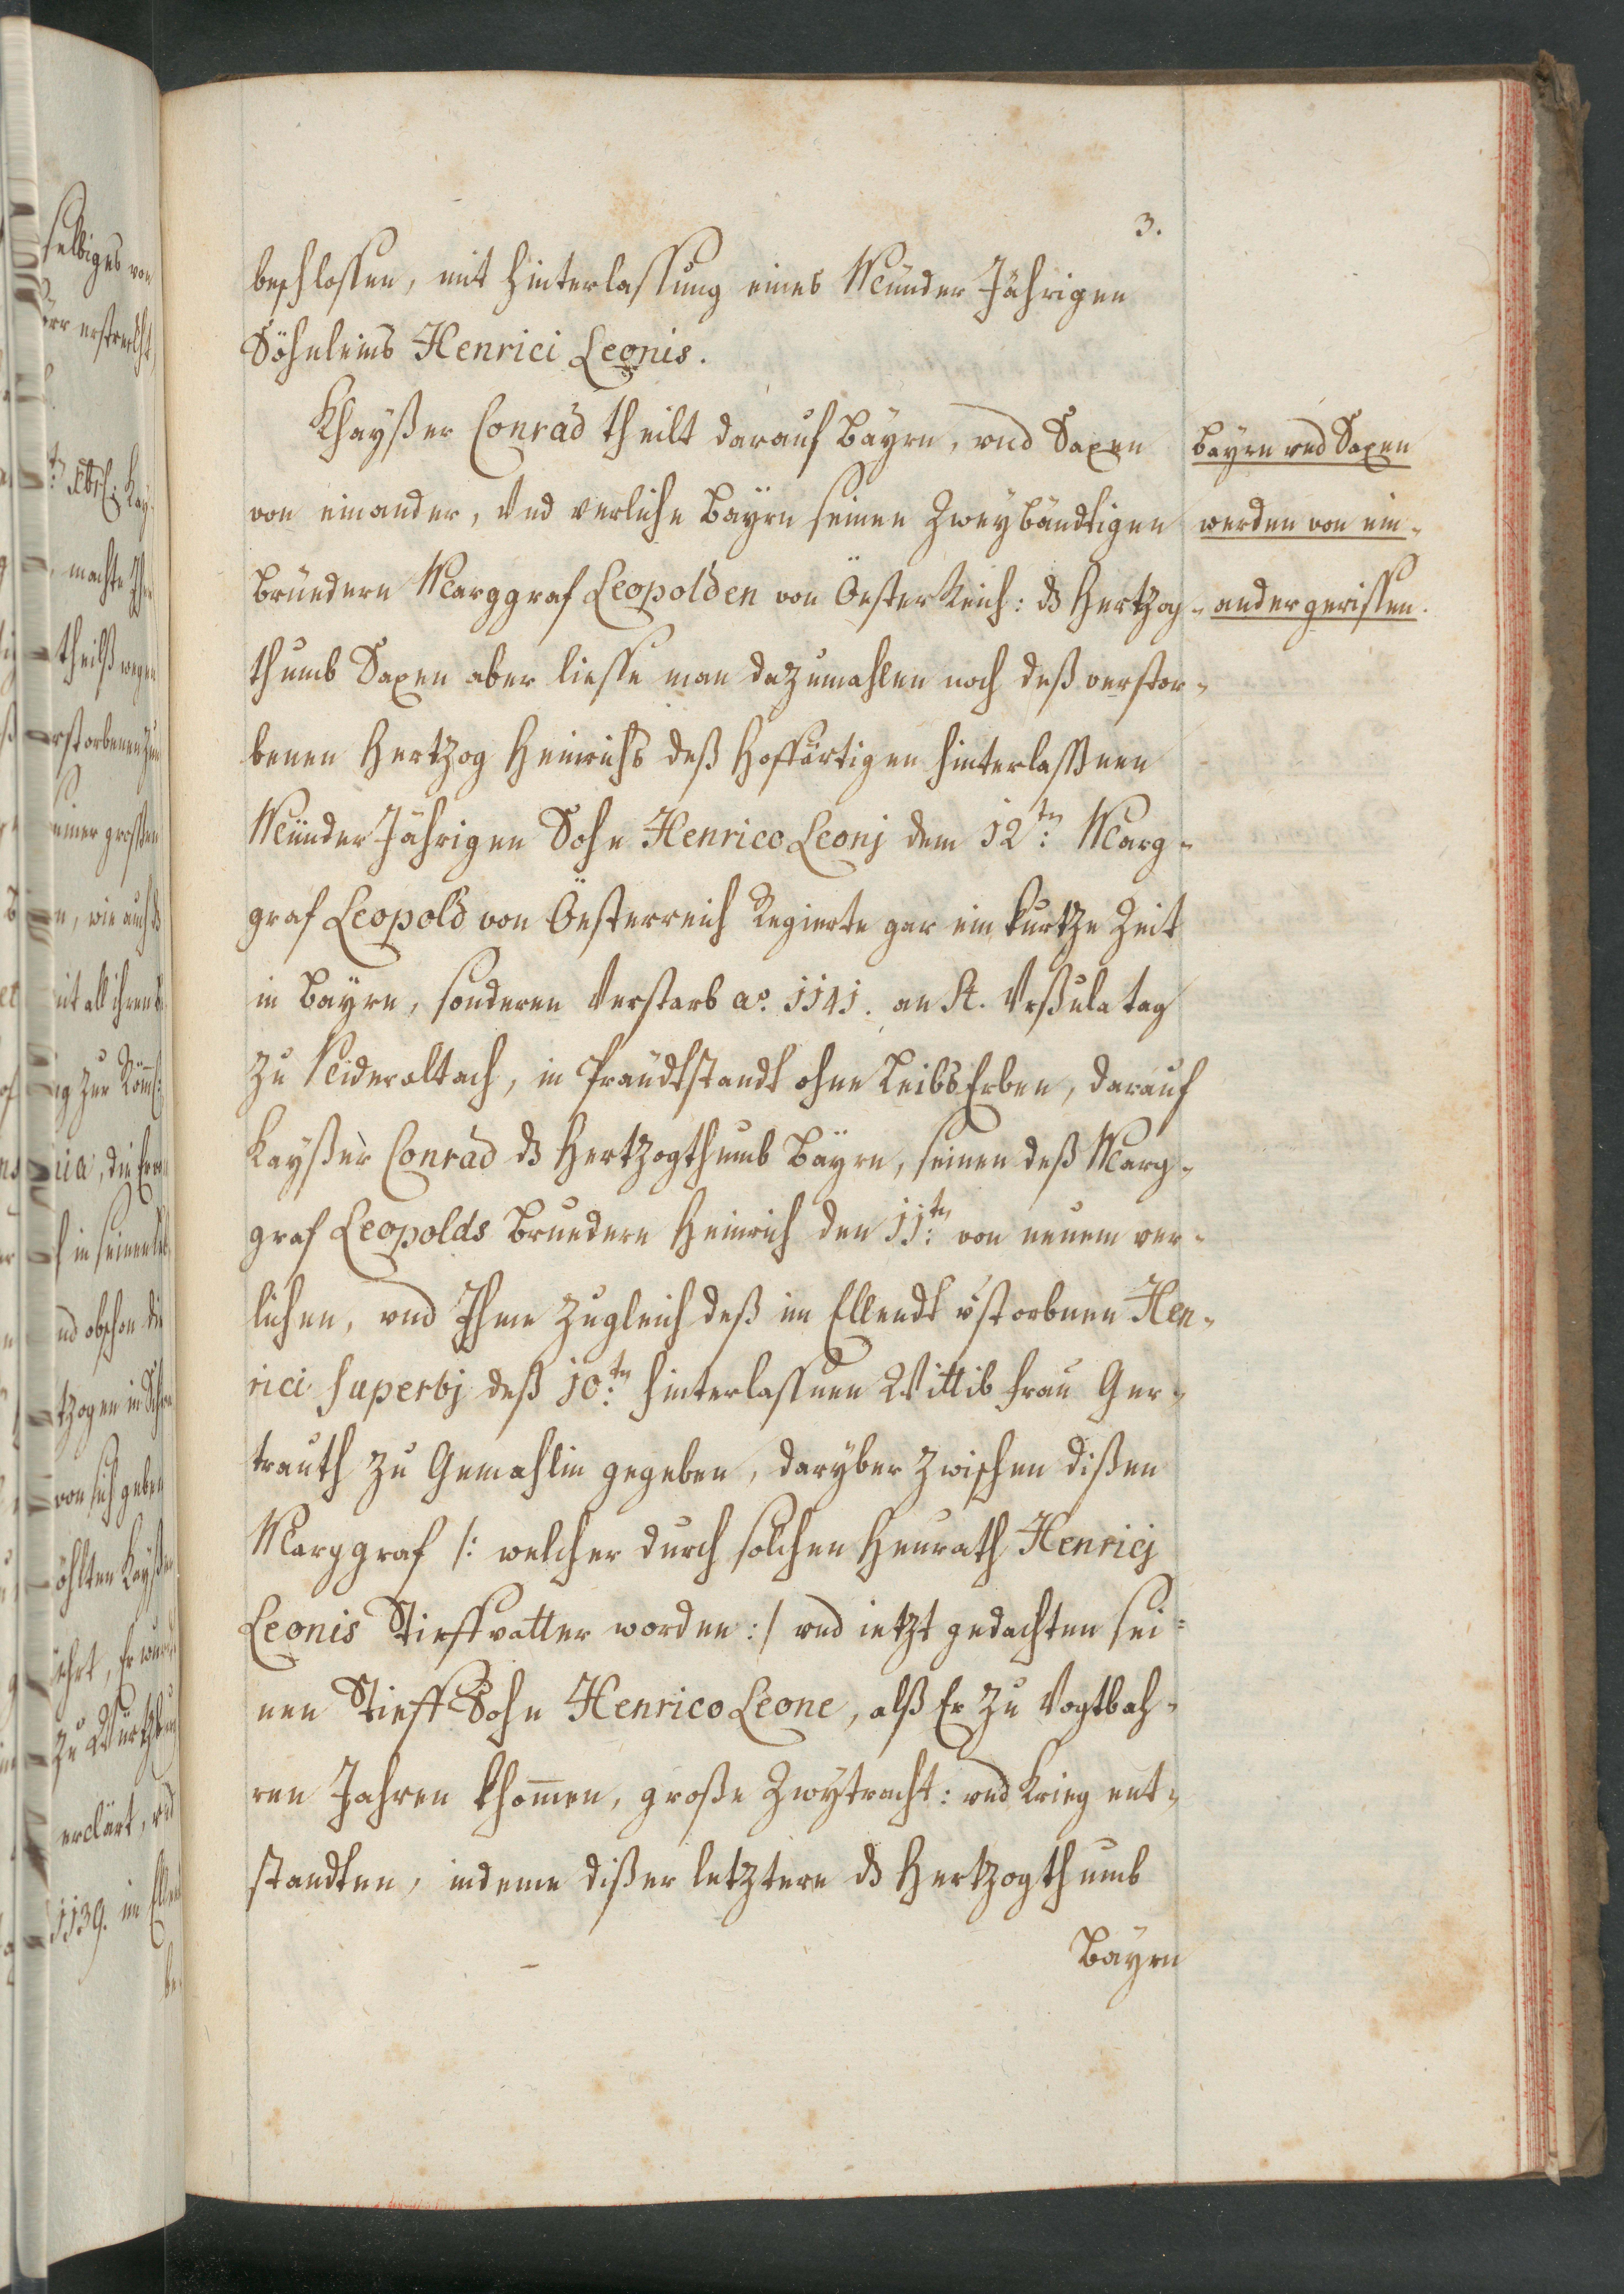 3.
beschlossen, mit hinterlassung eines Münder Jährigen
Söhnleins Henrici Leonis.
Khaÿßer Conrad theilt darauf Baÿrn, und Saxen
von einander, Und verliche Baÿrn seinen Zweÿbändtigen
Bruedern Marggraf Leopolden von ÖesterReich: dz Hertzog-
thumb Saxen aber liesse man dazumahlen noch deß verstor-
benen Hertzog Heinrichs deß Hoffärtigen hinterlassnen
Münder Jährigen Sohn Henrico Leonj dem 12tn: Marg-
graf Leopold von Öesterreich Regierte gar ein kurtze Zeit
in Baÿrn, sonderen Verstarb ao. 1141. an St. Ursula tag
zu Nideraltach, in Präudtstandt ohne Leibs Erben, darauf
Kaÿßer Conrad dz Hertzogthumb Baÿrn, seinen deß Marg-
graf Leopolds Bruedern Heinrich den 11tn: von neuem ver-
lichen, und Ihme zugleich deß im Ellendt vstorbnen Hen-
rici Superbj deß 10tn: hinterlassnen Wittib Frau Ger-
trauth zu Gemahlin gegeben, darÿber zwischen dißen
Marggraf /: welcher durch solchen Heurath Henricj
Leonis Stieffvatter worden :/ und ietzt gedachten sei-
nen Stieff Sohn Henrico Leone, alß Er zu Vogtbah-
ren Jahren khom̄en, große Zwÿtracht: und Krieg ent-
standten, indeme dißer letztere dz Hertzogthumb
Baÿrn
Baÿrn und Saxen
werden von ein-
ander gerissen.
selbiges von
machte Ihr
theilß wegen
rstorbenen zu
einer grossen
n, wie auch dz
it all ihren
in seinen
nd obschon die
tzogen in
von sich geben
zu Würtzburg
erclärt, und
1139. im Ellendt
be-